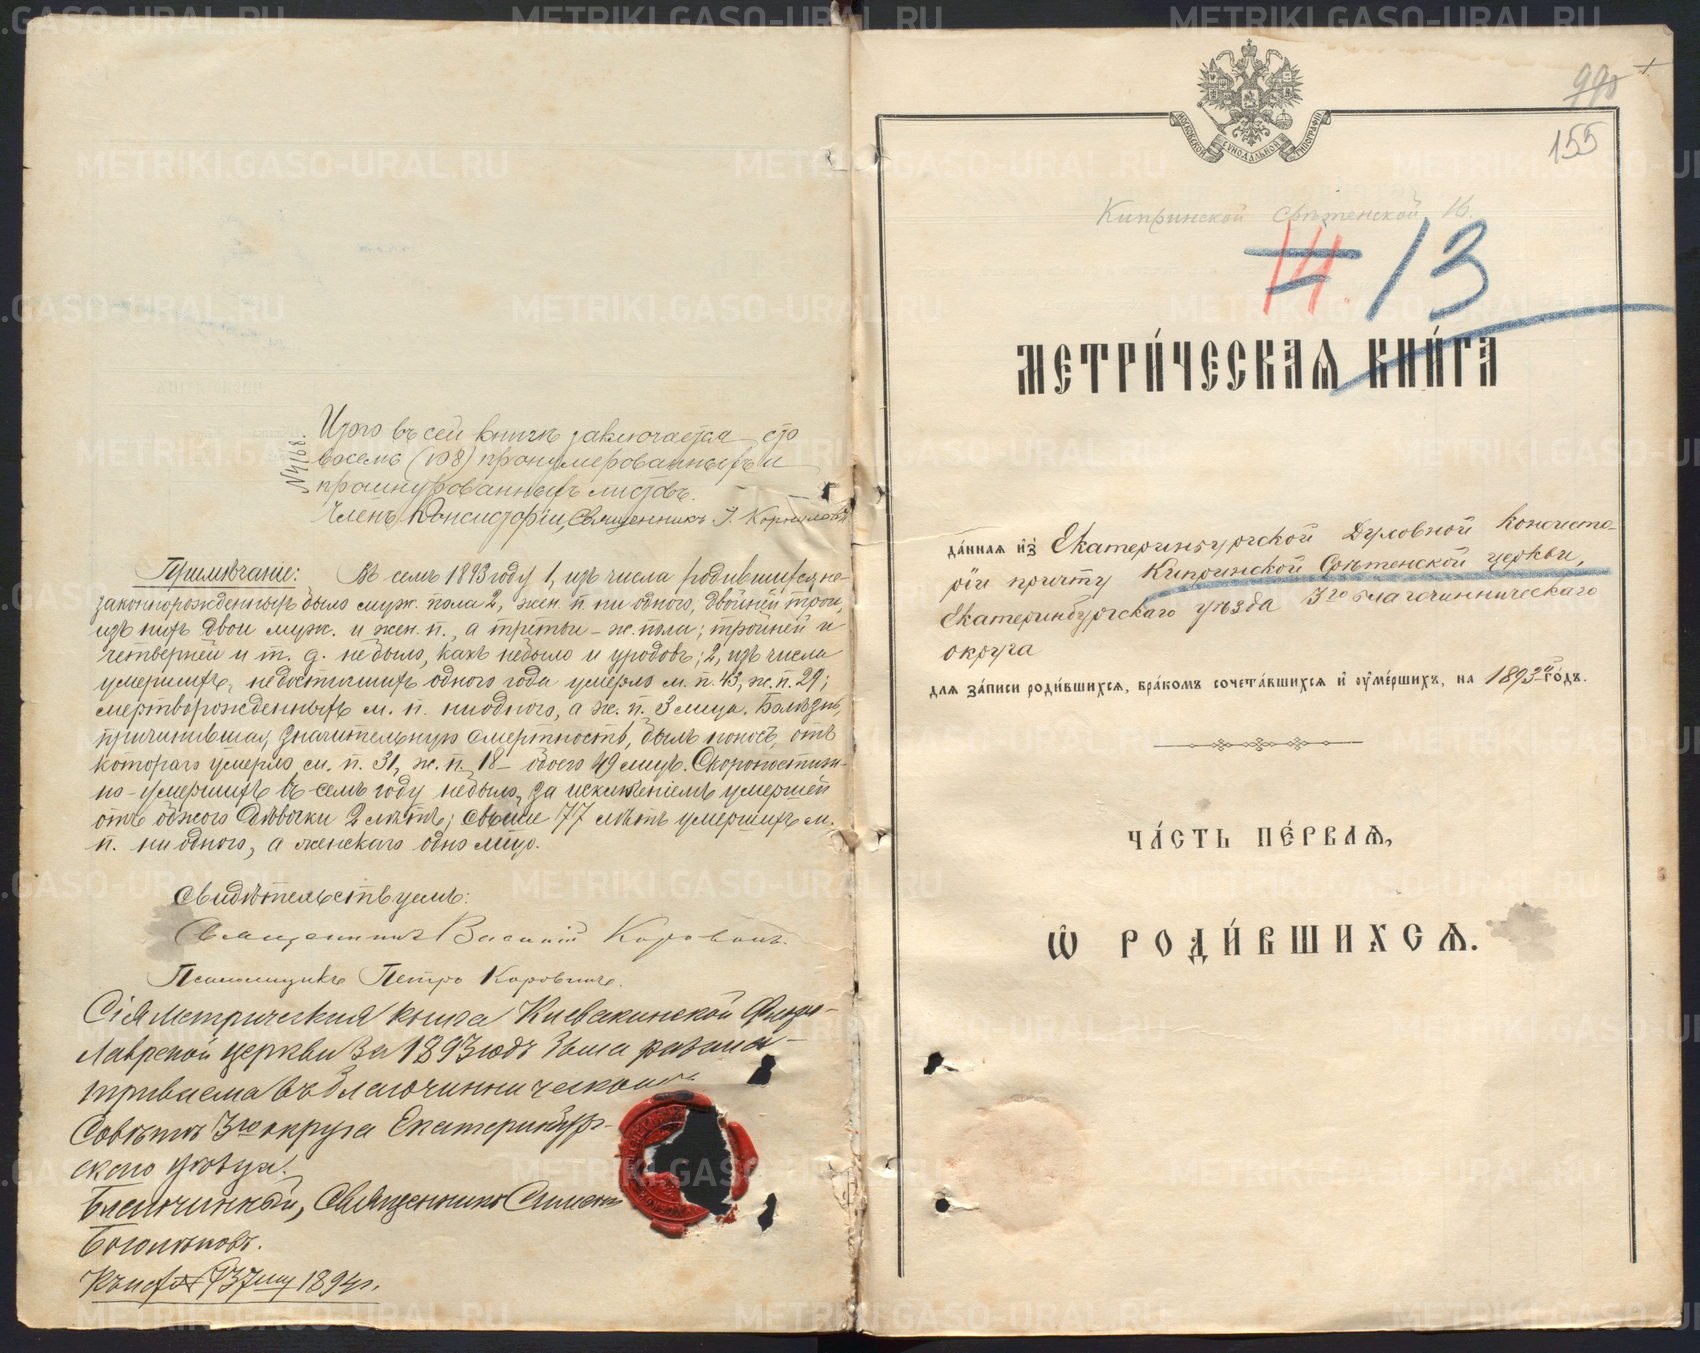 № 4168.
Итого въ сей книгѣ заключается сто
восемь (108) пронумерованныхъ и
прошнурованныхъ листовъ.
Членъ Консисторіи, Священникъ І. Корниловъ
Примѣчаніе: Въ семъ 1893 году 1, изъ числа родившихся не-
законнорожденныхъ было муж. пола 2, жен. п. ни одного, двойней трои,
изъ нихъ двои муж. и жен. п., а третьи – ж. пола; тройней и
четверней и т. д. небыло, какъ небыло и уродовъ; 2, изъ числа
умершихъ, недостигшихъ одного года умерло м. п. 43, ж. п. 29;
мертворожденныхъ м. п. ниодного, а ж. п. 3 лица. Болѣзнь,
причинившая, значительную смертность, былъ поносъ, отъ
котораго умерло м. п. 31, ж. п. 18 – обоего 49 лицъ. Скоропостиж-
но-умершихъ въ семъ году небыло, за исключеніемъ умершей
отъ обжога дѣвочки 2 лѣтъ; свыше 77 лѣтъ умершихъ м.
п. ни одного, а женскаго одно лицо.
Свидѣтельствуемъ:
Священникъ Василій
Псаломщикъ Петръ Коровинъ.
Сія метрическая книга Флоро-
Лаврской церкви за 1893 годъ была разсма-
триваема въ Благочинническомъ
Совѣтѣ 3го округа Екатеринбург-
скаго уѣзда.
Благочинный, Священникъ Симеонъ
1894 г.
МОСКОВСКОЙ СѴНОДАЛЬНОЙ ТИПОГРАФІИ
990
155
Кипринской Срѣтенской 16.
14. 13
МЕТРИ́ЧЕСКАѦ КНИ́ГА
да́ннаѧ и҆з̾ Екатеринбургской Духовной Консисто-
ріи причту Кипринской Срѣтенской церкви,
Екатеринбургскаго уѣзда 3го благочинническаго
округа
для за́писи роди́вшихсѧ, бра́комъ сочета́вшихсѧ и҆ оу҆ме́ршихъ, на 1893й го́дъ.
ЧА́СТЬ ПЕ́РВАѦ,
Ѽ РОДИ́ВШИХСѦ.